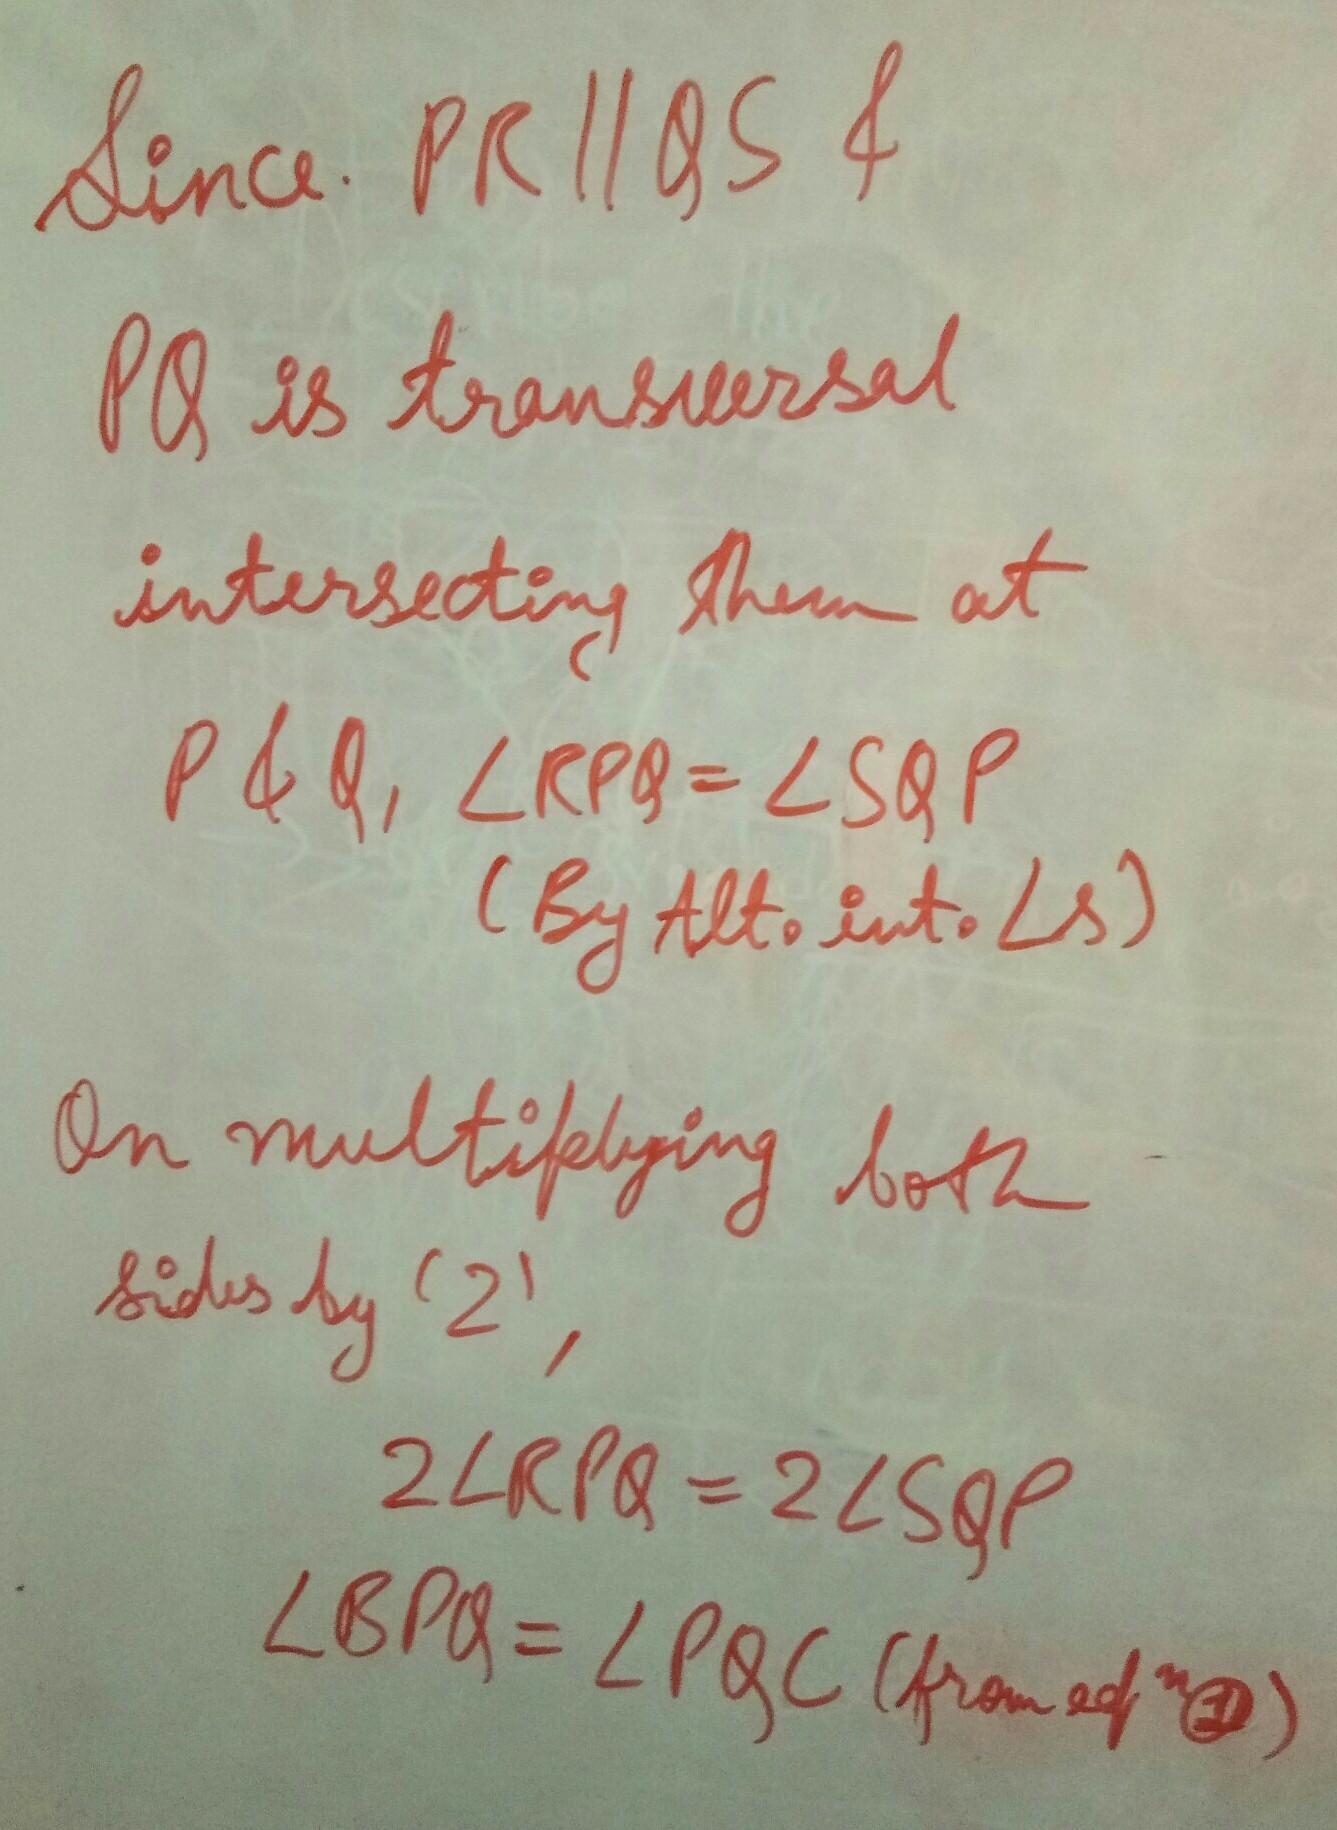 Since. PR || QS &
PQ is transversal
intersecting them at
P & Q, ∠RPQ = ∠SQP
(By Alt. int. ∠s)
On multiplying both
sides by '2',
2∠RPQ = 2∠SQP
∠BPQ = ∠PQC (from eqⁿ ①)